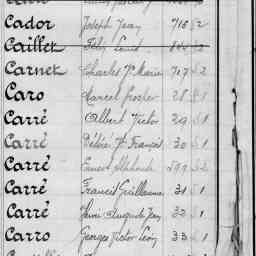 Cador Joseph Jean 716 S2
Caillet Félix Louis
Carnet Charles Fs Marie 717 S2
Caro Marcel Prosper 28 S1
Carré Albert Victor 29 S1
Carré Désiré Fs François 30 S1
Carré Ernest Alphonse 899 S2
Carré Francis Guillaume 31 S1
Carré Henri Auguste Jean 32 S1
Carro Georges Victor Léon 33 S1